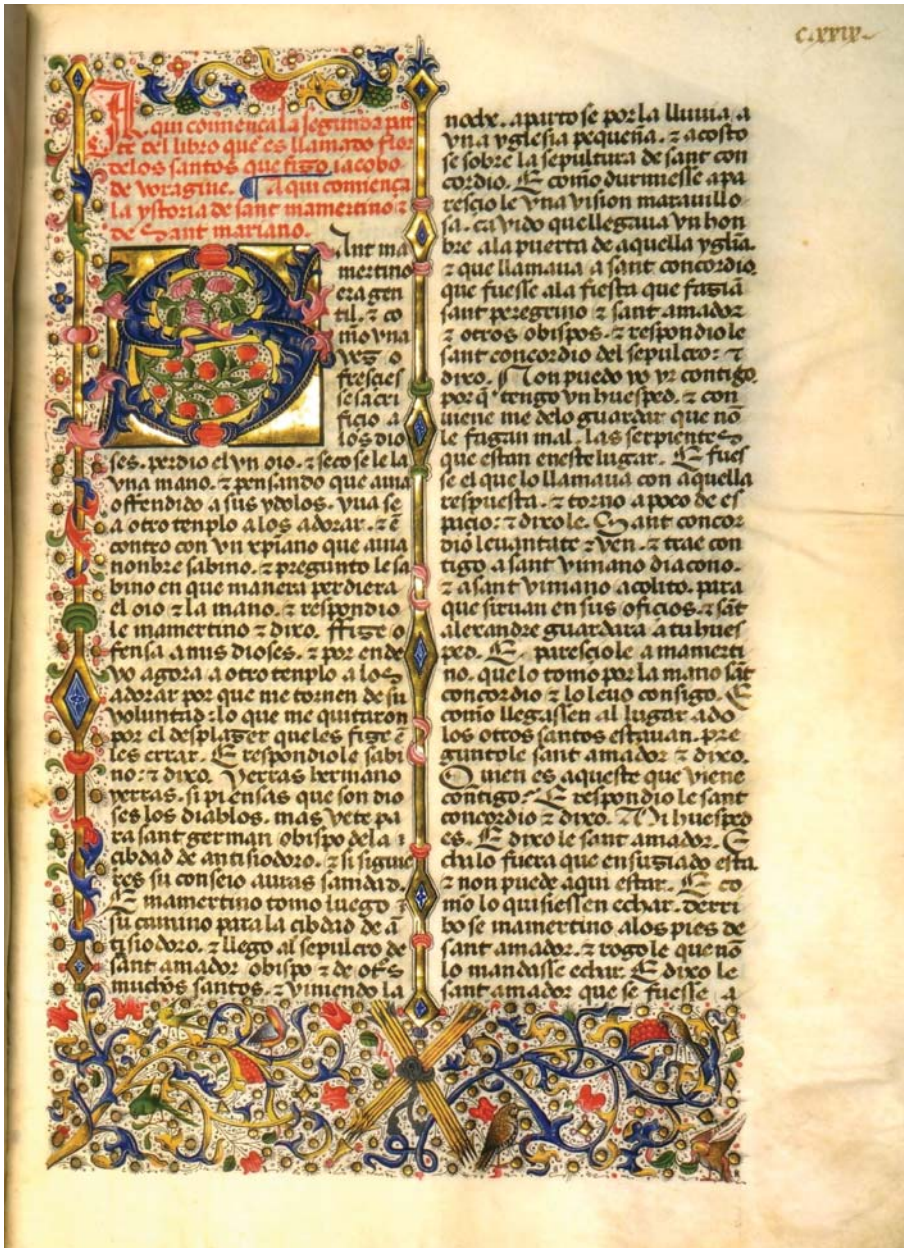 c.xxix
Aqui comiença la segunda par
te del libro que es llamado flor
delos santos que figo iacobo
de voragine. ¶ Aqui comiença
la ystoria de sant mamertino ⁊
de Sant mariano.
Sant ma
mertino
era gen
til. ⁊ co
mo vna
vez o
fresçies
se sacri
ficio a
los dio
ses. perdio el vn oio. ⁊ seco se le la
vna mano. ⁊ pensando que auia
offendido a sus ydolos. yua se
a otro templo a los adorar. ⁊ ẽ
contro con vn xp̃iano que auia
nonbre sabino. ⁊ pregunto le sa
bino en que manera perdiera
el oio ⁊ la mano. ⁊ respondio
le mamertino ⁊ dixo. ffize o
fensa a mis dioses. ⁊ por ende
vo agora a otro templo a los
adorar por que me tornen de su
voluntad: lo que me quitaron
por el desplazer que les fize ẽ
les errar. E respondiole sabi
no: ⁊ dixo. Yerras hermano
yerras. si piensas que son dio
ses los diablos. mas vete pa
ra sant german obispo dela
cibdad de antisiodoro. ⁊ si siguie
res su conseio auras sanidad.
E mamertino tomo luego
su camino para la cibdad de ã
tisiodoro. ⁊ llego al sepulcro de
sant amador obispo ⁊ de otr̃s
muchos santos. ⁊ viniendo la
noche. aparto se por la lluuia a
vna yglesia pequeña. ⁊ acosto
se sobre la sepultura de sant con
cordio. E como durmiesse apa
rescio le vna vision marauillo
sa. ca vido que llegaua vn hon
bre ala puerta de aquella ygl̃ia.
⁊ que llamaua a sant concordio
que fuesse ala fiesta que faziã
sant peregrino ⁊ sant amador
⁊ otros obispos. ⁊ respondio le
sant concordio del sepulcro: ⁊
dixo. Non puedo yo yr contigo.
por q̃ tengo vn huesped. ⁊ con
uiene me delo guardar que nõ
le fagan mal. las serpientes
que estan eneste lugar. E fues
se el que lo llamaua con aquella
respuesta. ⁊ torno a poco de es
pacio: ⁊ dixole. Sant concor
dio leuantate ⁊ ven. ⁊ trae con
tigo a sant viuiano diacono.
⁊ a sant viuiano acolito. para
que siruan en sus oficios. ⁊ sãt
alexandre guardara a tu hues
ped. E. paresciole a mamerti
no. que lo tomo por la mano sãt
concordio ⁊ lo leuo consigo. E
como llegassen al lugar ado
los otros santos estauan. pre
guntole sant amador ⁊ dixo.
Quien es aqueste que viene
contigo. E respondio le sant
concordio ⁊ dixo. Mi huesped
es. E dixo le sant amador. E
chalo fuera que ensuziado esta.
⁊ non puede aqui estar. E co
mo lo quisiessen echar. derri
bo se mamertino alos pies de
sant amador. ⁊ rogo le que nõ
lo mandasse echar. E dixo le
sant amador que se fuesse a